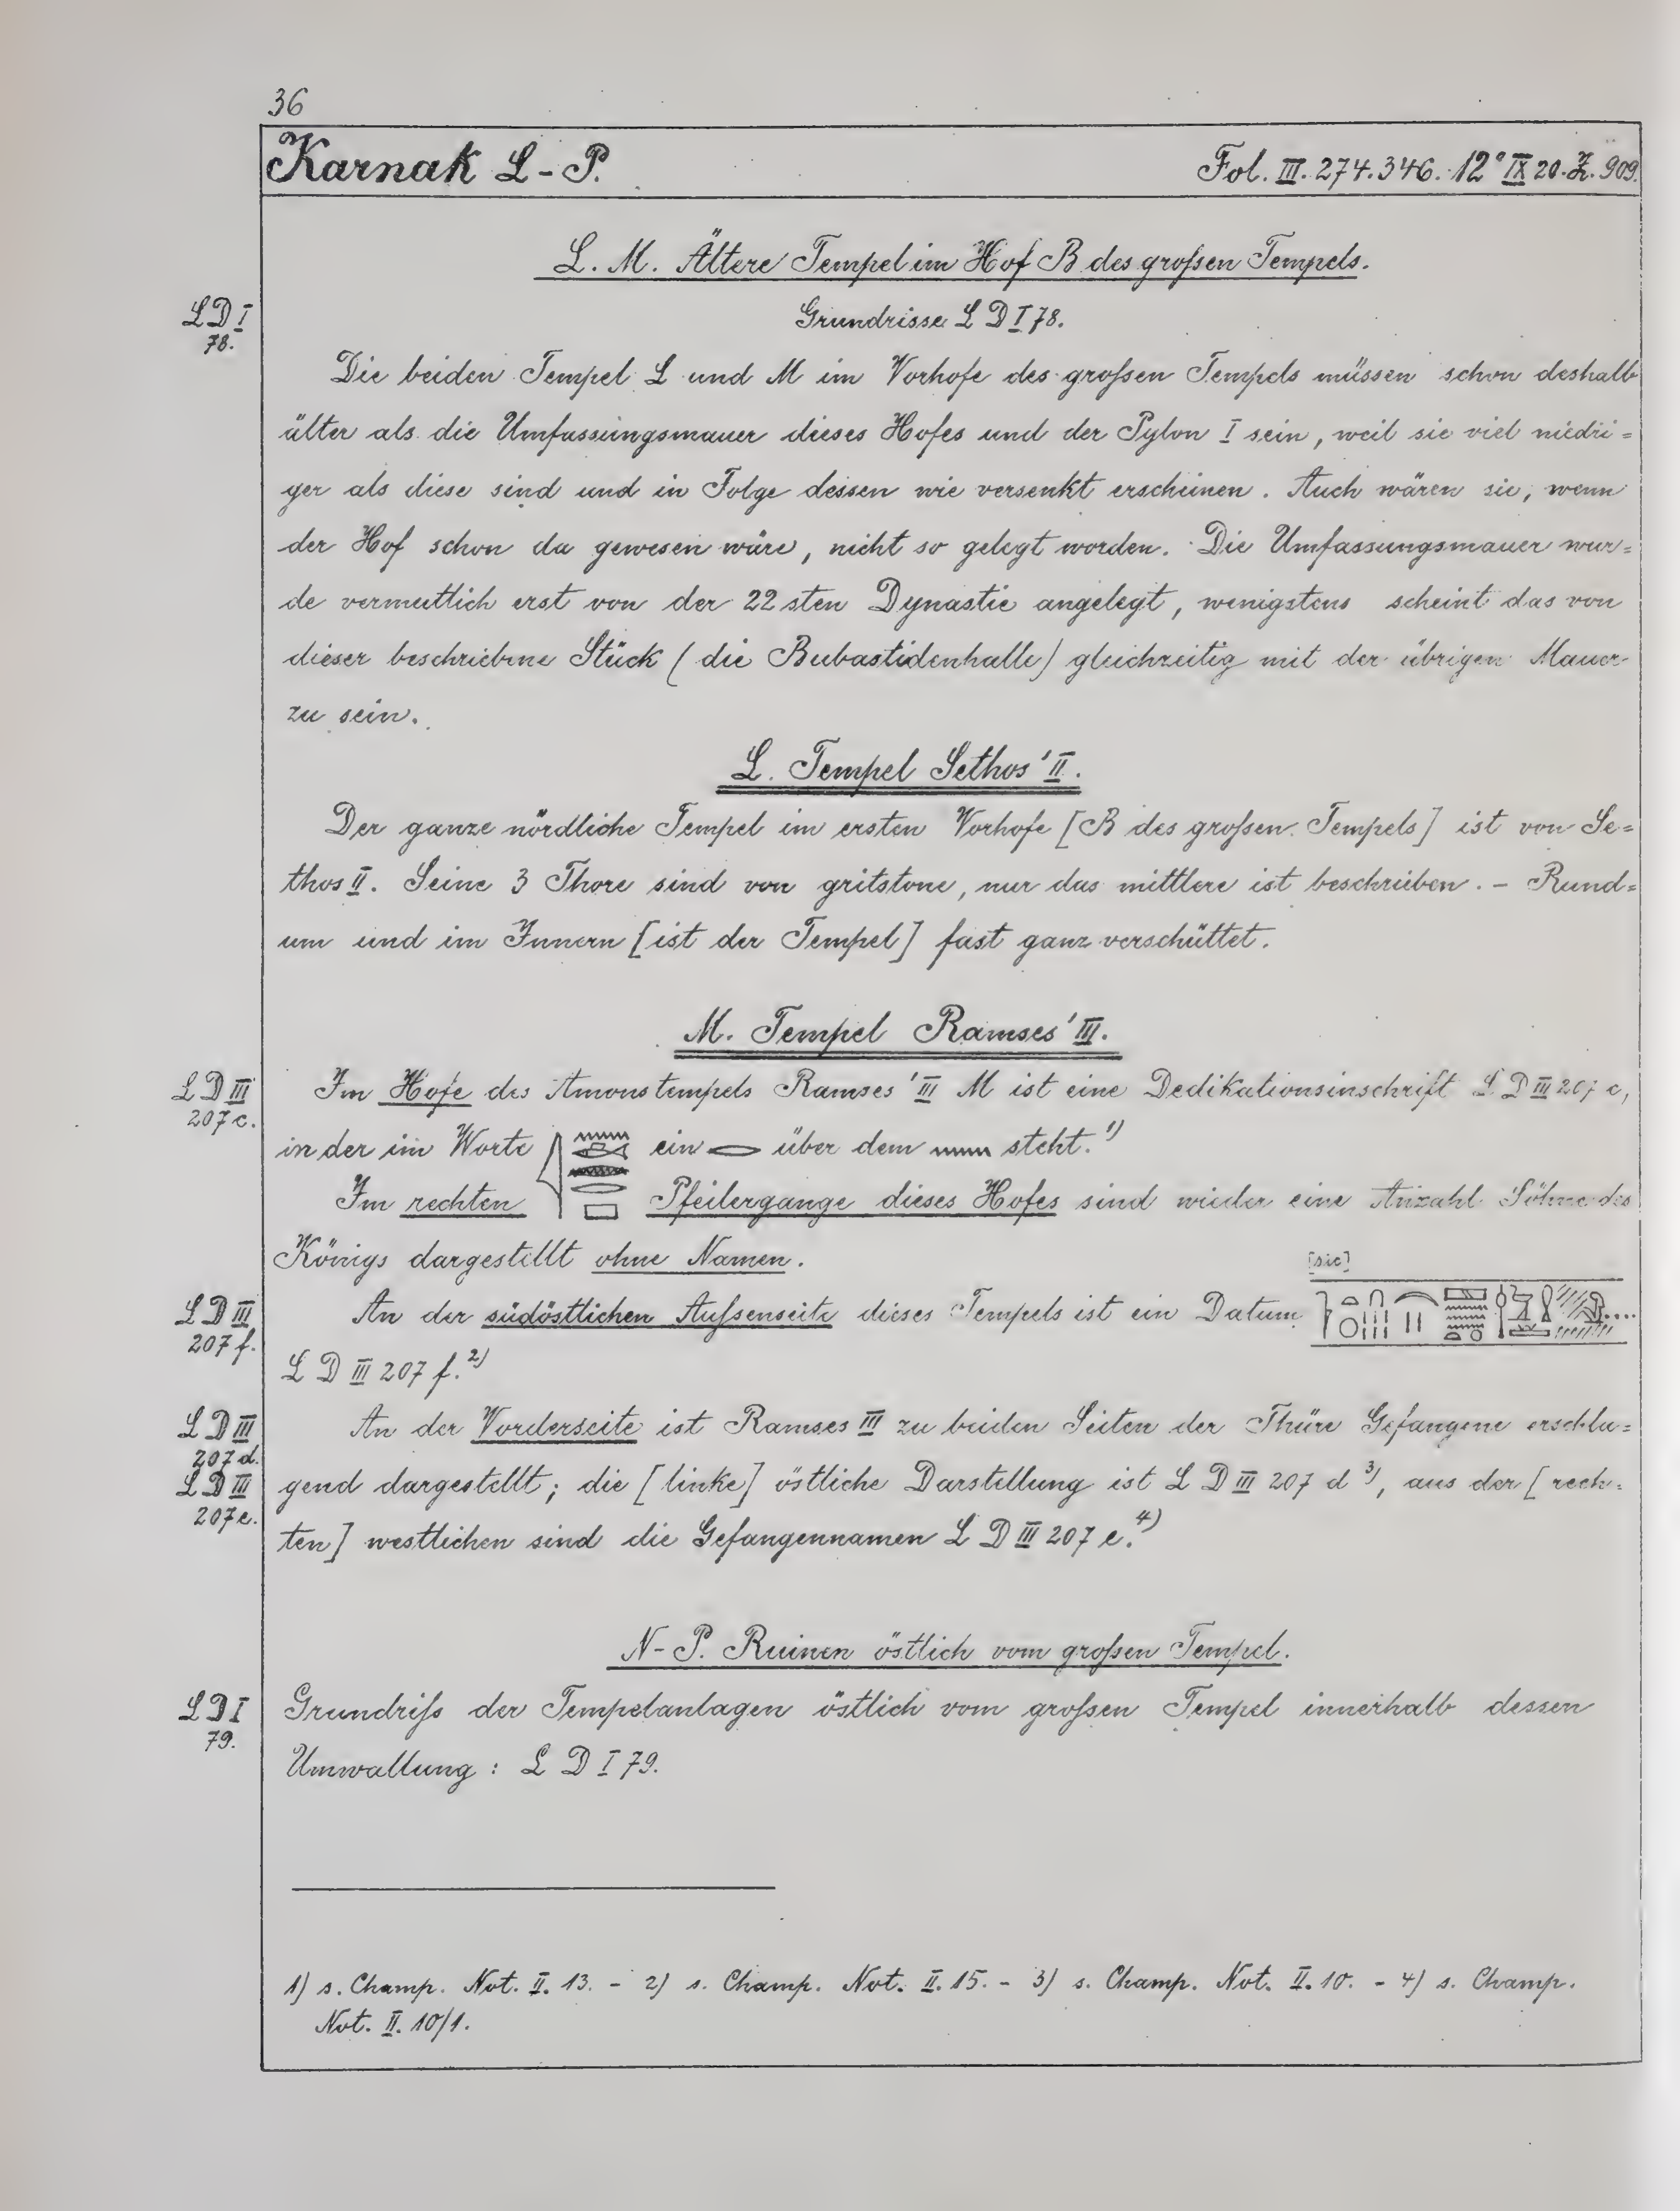 36
Karnak L-P. Fol. III. 274. 346. 12° IX 20. Z. 909.
L. M. Ältere Tempel im Hof B des großen Tempels.
Grundrisse L D I 78.
L D I
78.
Die beiden Tempel L und M im Vorhofe des großen Tempels müssen schon deshalb
älter als die Umfassungsmauer dieses Hofes und der Pylon I sein, weil sie viel niedri=
ger als diese sind und in Folge dessen wie versenkt erscheinen. Auch wären sie, wenn
der Hof schon da gewesen wäre, nicht so gelegt worden. Die Umfassungsmauer wur=
de vermutlich erst von der 22sten Dynastie angelegt, wenigstens scheint das von
dieser beschriebene Stück (die Bubastidenhalle) gleichzeitig mit der übrigen Mauer
zu sein.
L. Tempel Sethos' II.
Der ganze nördliche Tempel im ersten Vorhofe [B des großen Tempels] ist von Se=
thos II. Seine 3 Thore sind von gritstone, nur das mittlere ist beschrieben. - Rund=
um und im Innern [ist der Tempel] fast ganz verschüttet.
M. Tempel Ramses' III.
L D III
207 c.
Im Hofe des Amonstempels Ramses' III M ist eine Dedikationsinschrift L D III 207 c,
in der im Worte ein über dem steht. 1)
Im rechten Pfeilergange dieses Hofes sind wieder eine Anzahl Söhne des
Königs dargestellt ohne Namen.
[sic]
L D III
207 f.
An der südöstlichen Außenseite dieses Tempels ist ein Datum
L D III 207 f. 2)
L D III
207 d.
L D III
207 e.
An der Vorderseite ist Ramses III zu beiden Seiten der Thüre Gefangene erschla=
gend dargestellt; die [linke] östliche Darstellung ist L D III 207 d 3), aus der [rech=
ten] westlichen sind die Gefangennamen L D III 207 e. 4)
N-P. Ruinen östlich vom großen Tempel.
L D I
79.
Grundriß der Tempelanlagen östlich vom großen Tempel innerhalb dessen
Umwallung: L D I 79.
1) s. Champ. Not. II. 13. - 2) s. Champ. Not. II. 15. - 3) s. Champ. Not. II. 10. - 4) s. Champ.
Not. II. 10/1.